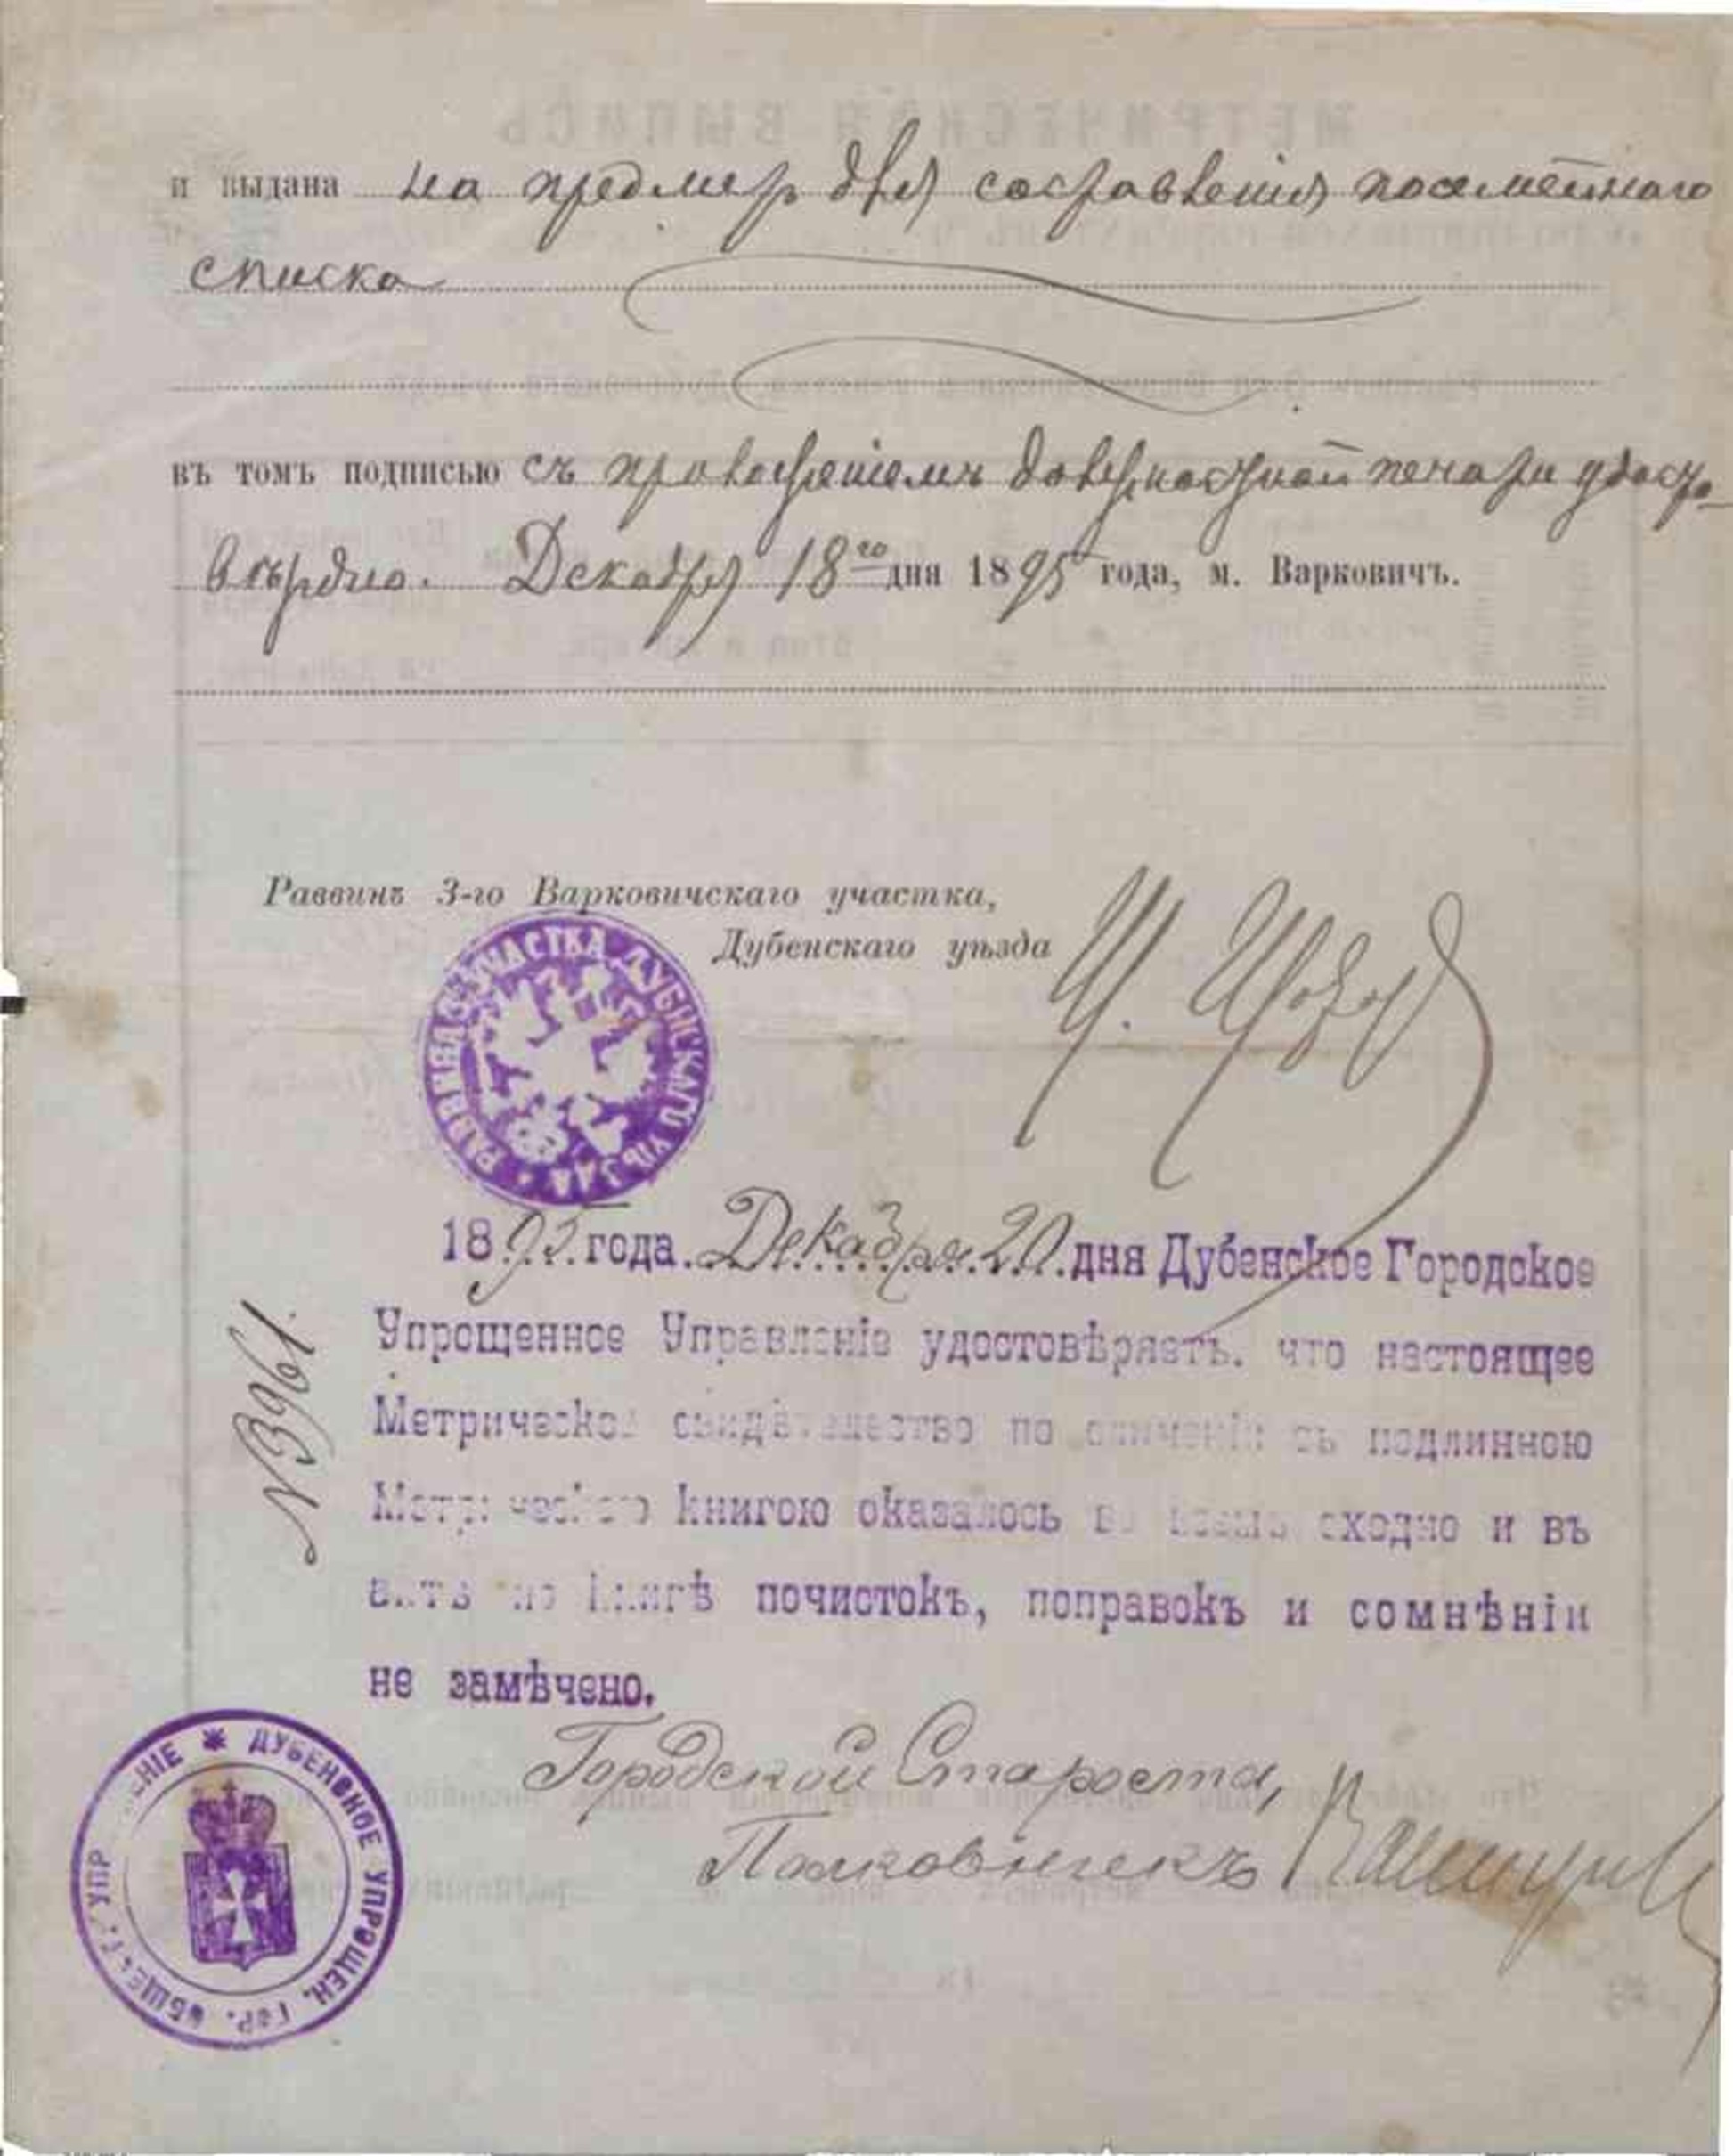 и выдана на предметъ для составленія посемейнаго
списка
въ томъ подписью съ приложеніемъ должностной печати удосто-
вѣрено. Декабря 18го дня 1895 года, м. Варковичъ.
Раввинъ 3-го Варковичскаго участка,
Дубенскаго уѣзда
РАВВИНА 3 УЧАСТКА ДУБЕНСКАГО УѢЗДА
1895 года. Декабря 20 дня Дубенское Городское
Упрощенное Управленіе удостовѣряетъ. что настоящее
Метрическое свидѣтельство по сличеніи съ подлинною
Метрическою книгою оказалось во всемъ сходно и въ
актѣ по книгѣ почистокъ, поправокъ и сомнѣніи
не замѣчено.
N3961.
Городской Староста,
Полковникъ
ДУБЕНСКОЕ УПРОЩЕН. ГОР. ОБЩЕСТ. УПР ЕНІЕ